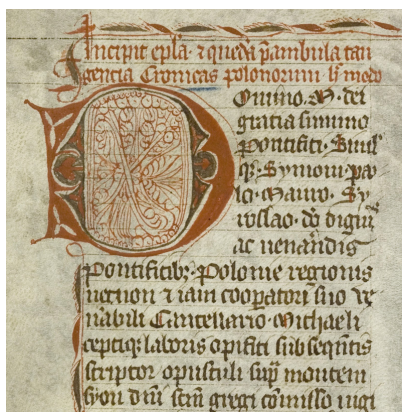 Incipit epla ⁊ queda pambula tan
gencia Cronicas polonorum
Domino · M · dei
gratia summo
Pontifici · Simil
q · Symoni · pa
lo · Mauro · Sy
roslao · do digniz
ac uenandis
Pontificibz · Polonie regionis
necnon ⁊ iam cooperatori suo ue
nabili Cancellario · Michaeli
ceptiqz laboris opifici subsequntis
scriptor opusculi sup montem
syon dni gregi comisso iugi